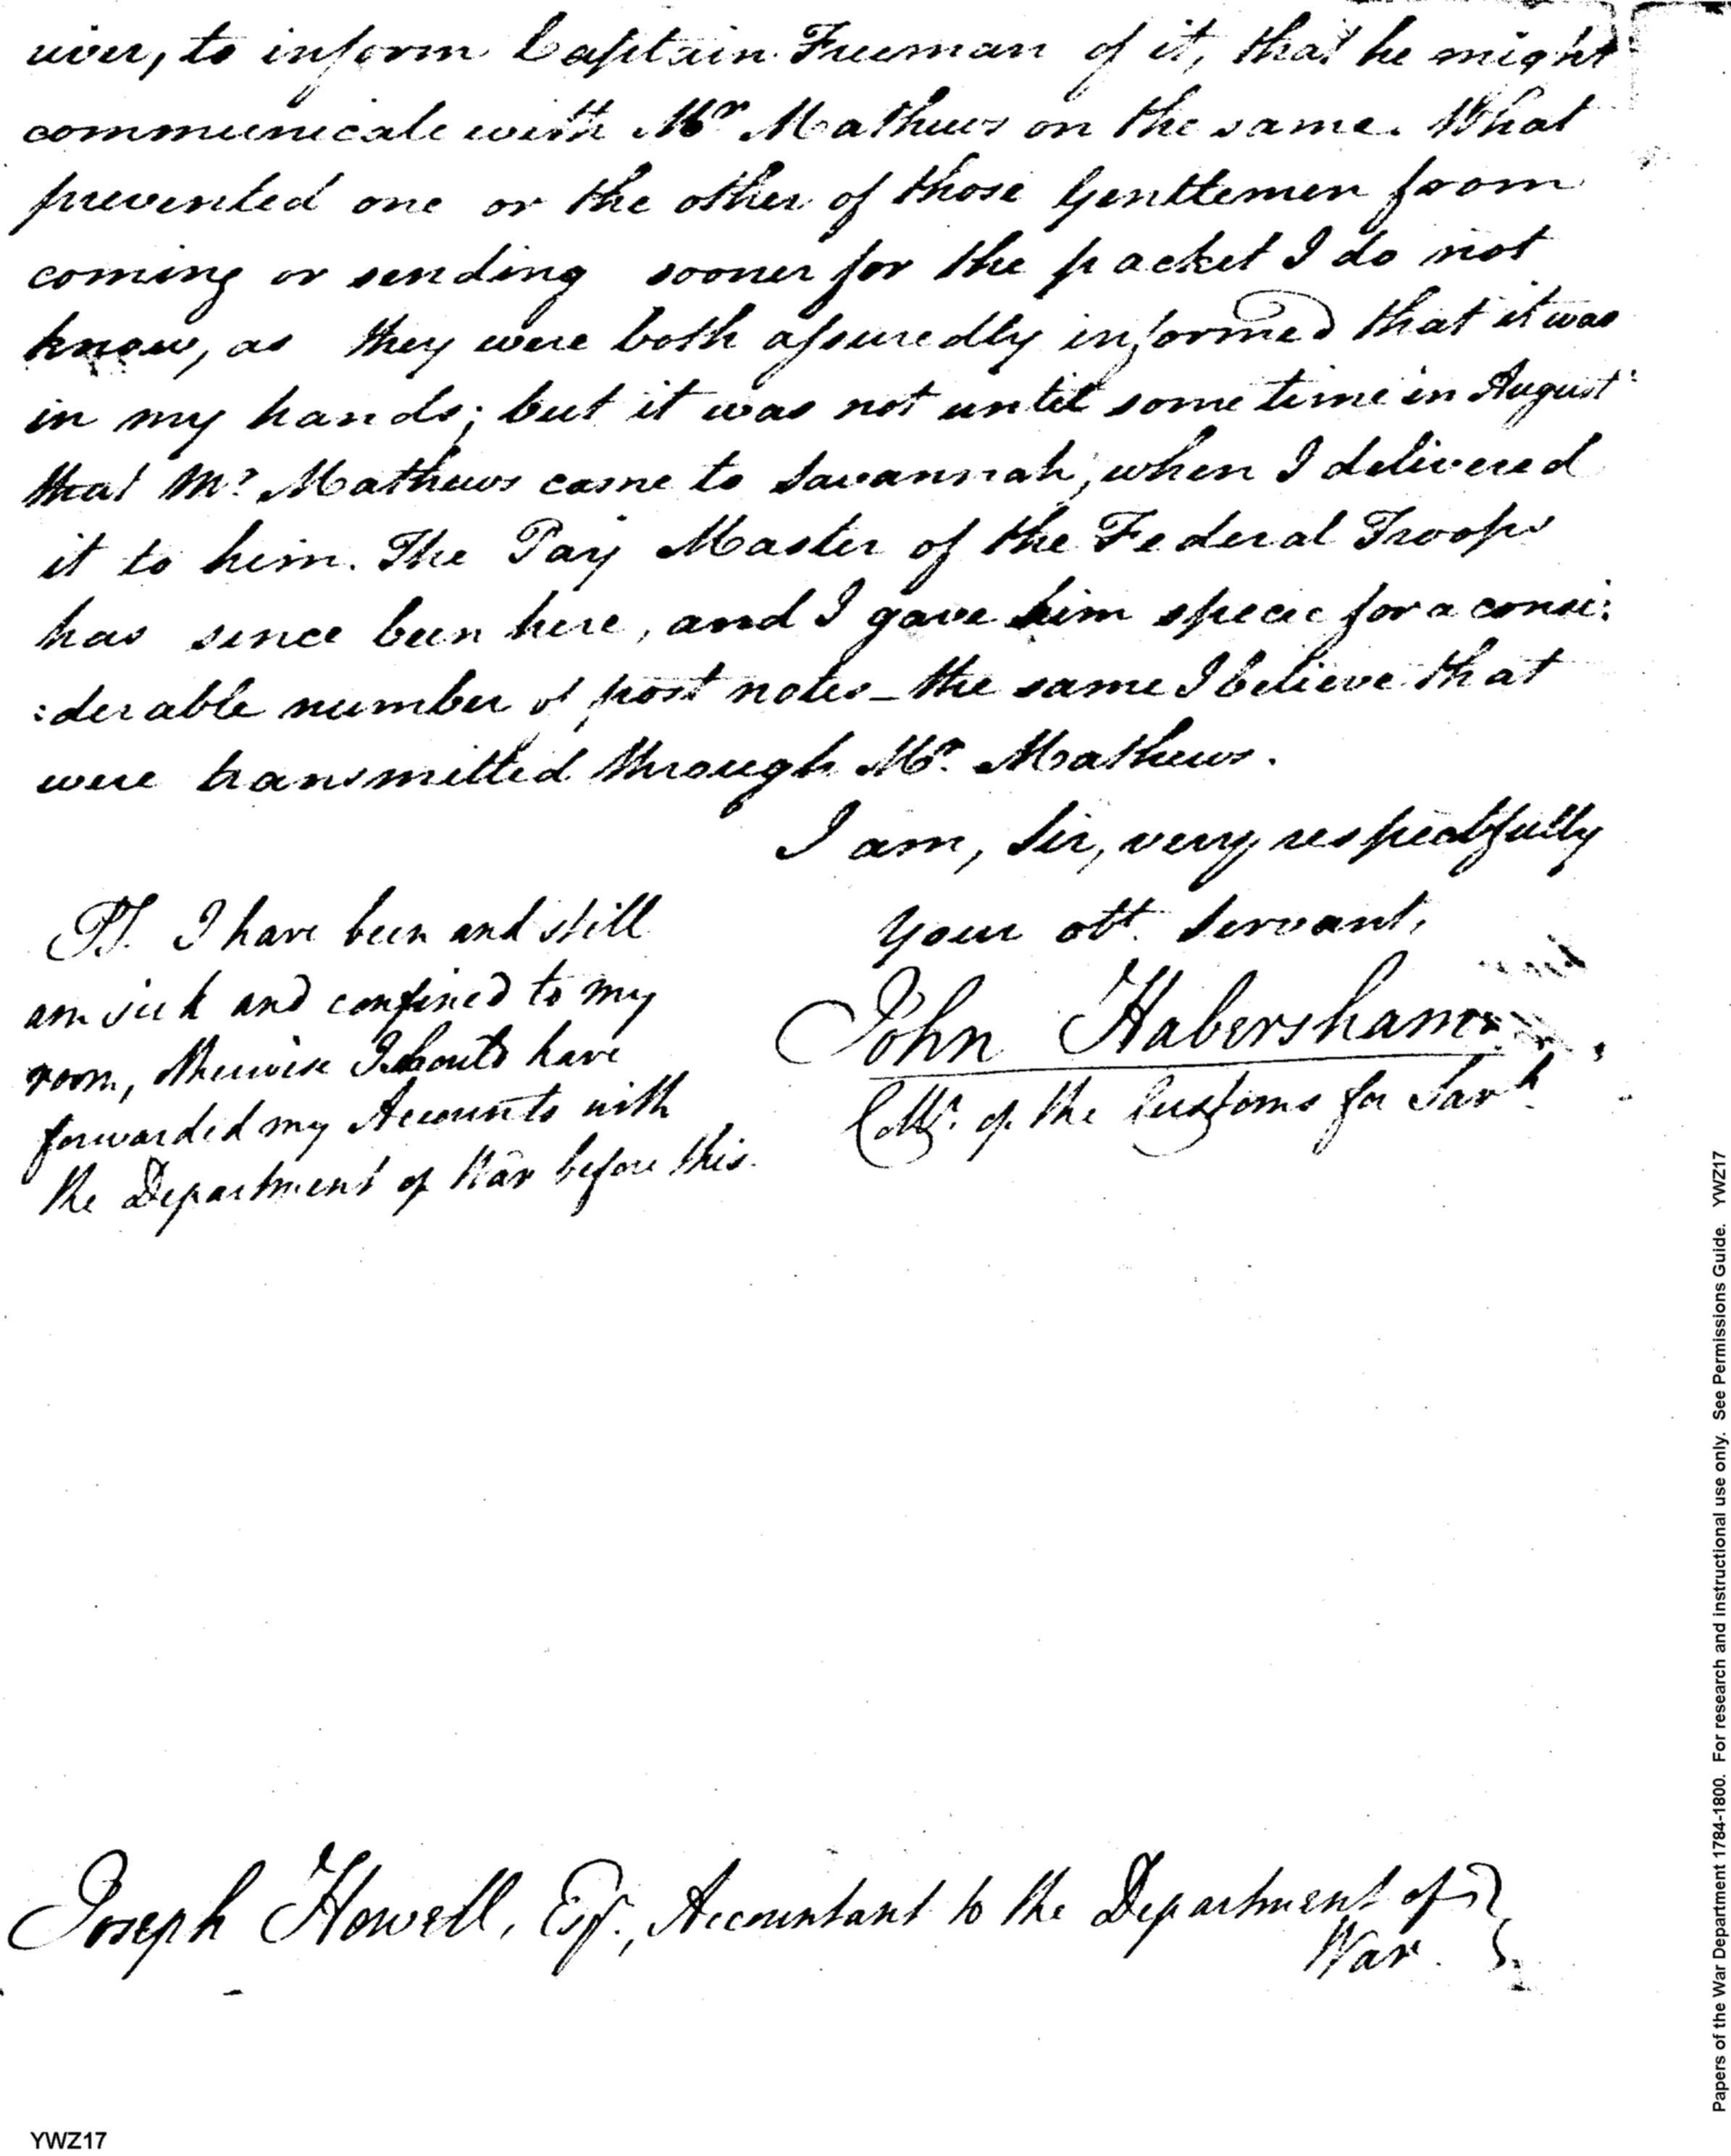 river, to inform Captain Freeman of it, that he might
communicate with Mr Mathews on the same. What
prevented one or the other of those Gentlemen from
coming or sending sooner for the packet I do not
know, as they were both assuredly informed that it was
in my hands; but it was not until some time in August
that Mr. Mathews came to Savannah, when I delivered
it to him. The Pay Master of the Federal Troops
has since been here, and I gave him specie for a consi:
:derable number of post notes – the same I believe that
were transmitted through Mr. Mathews.
I am, Sir, very respectfully
Your obt. Servant,
John Habersham
Collr. of the Customs for Savh.
PS. I have been and still
am sick and confined to my
room, otherwise I should have
forwarded my Accounts with
the Department of War before this.
Joseph Howell, Esqr., Accountant to the Department of
War.
Papers of the War Department 1784-1800. For research and instructional use only. See Permissions Guide. YWZ17
YWZ17